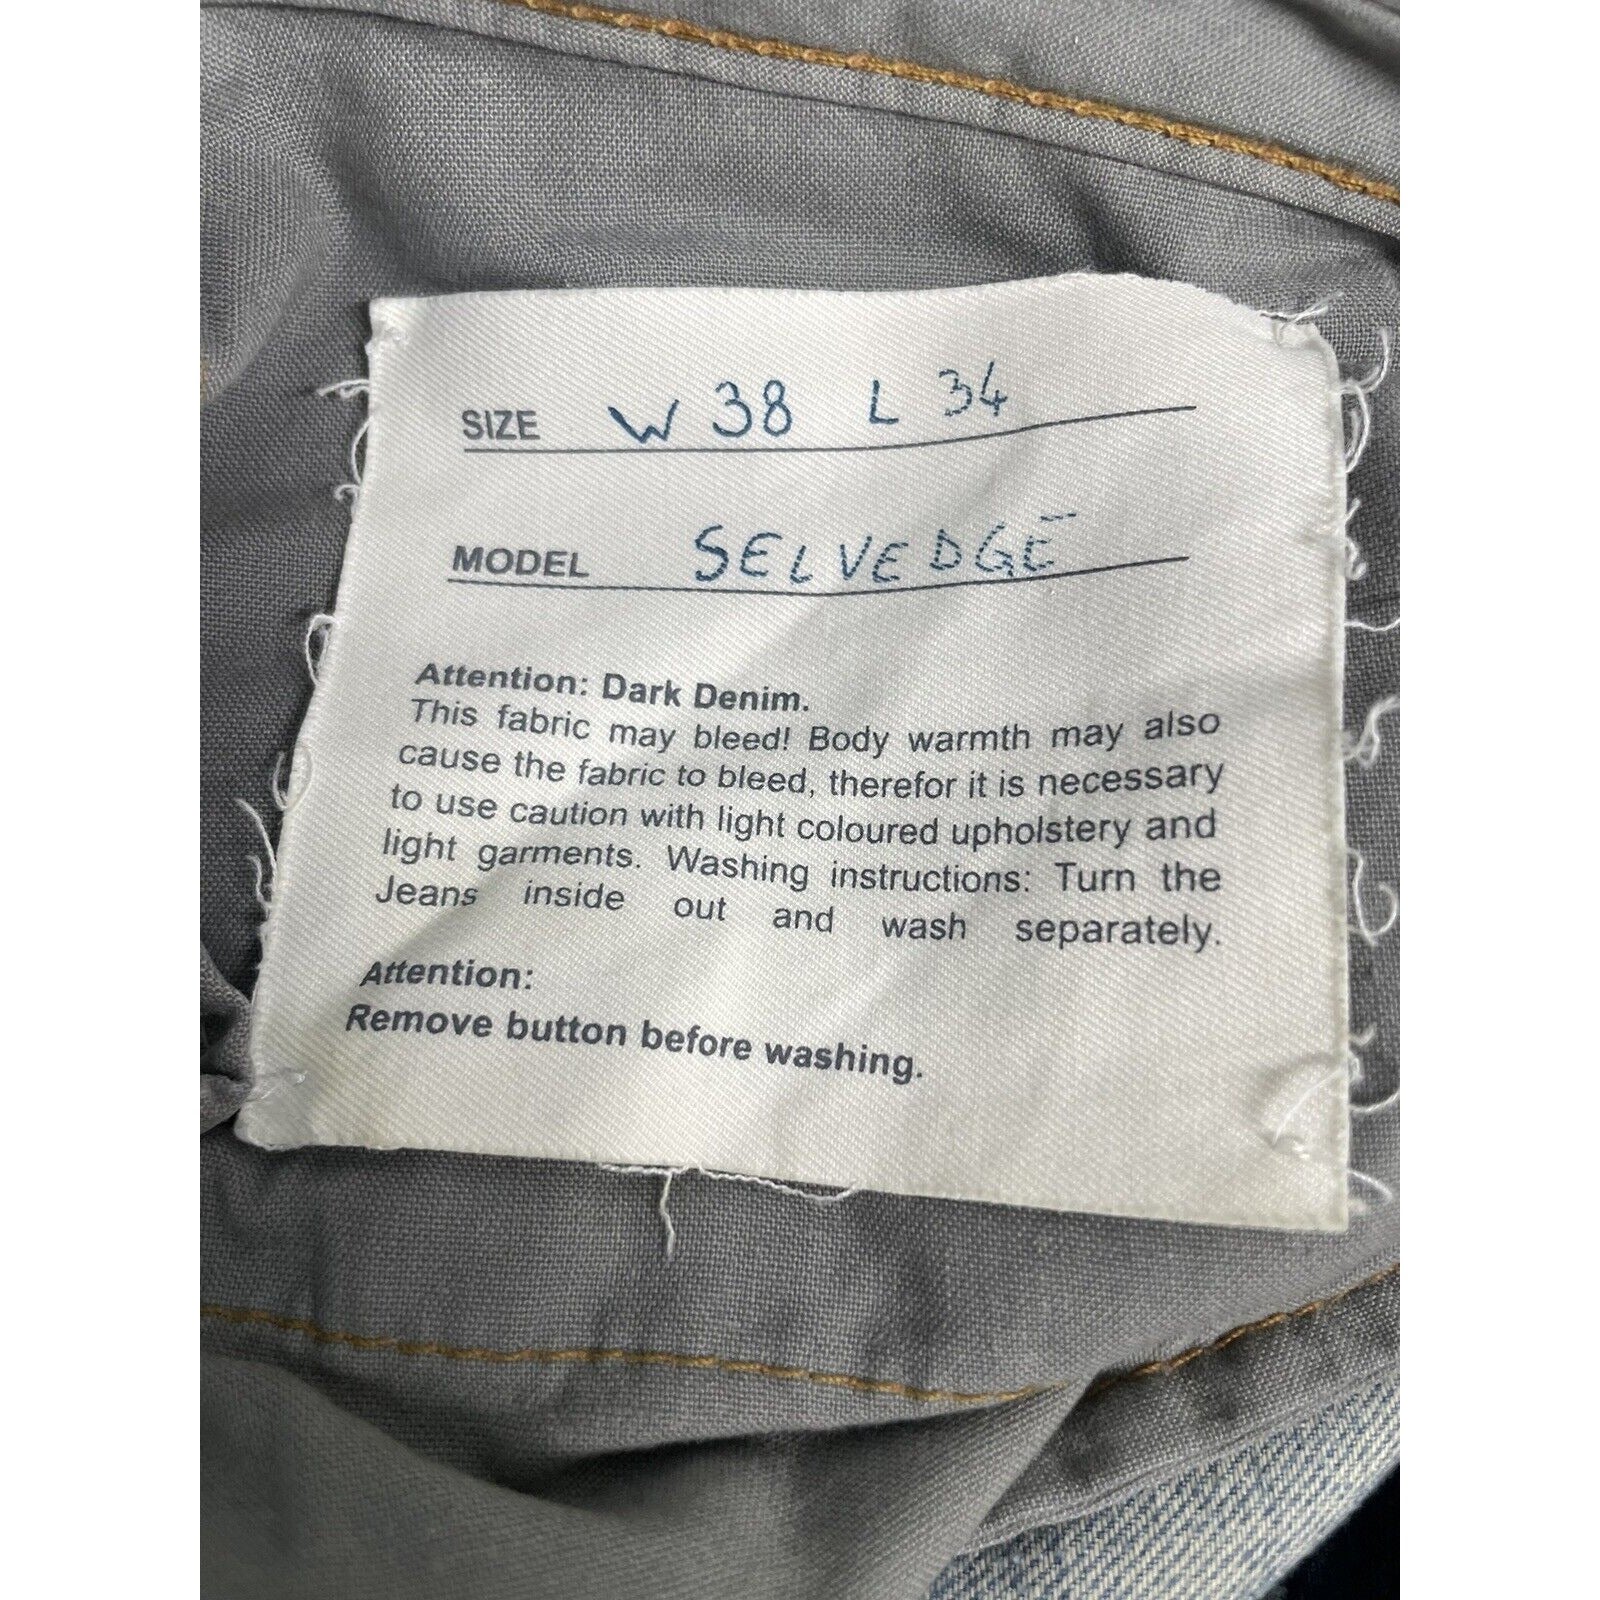 SIZE W 38 L 34
MODEL SELVEDGE
Attention: Dark Denim.
This fabric may bleed! Body warmth may also
cause the fabric to bleed, therefor it is necessary
to use caution with light coloured upholstery and
light garments. Washing instructions: Turn the
Jeans inside out and wash separately.
Attention:
Remove button before washing.